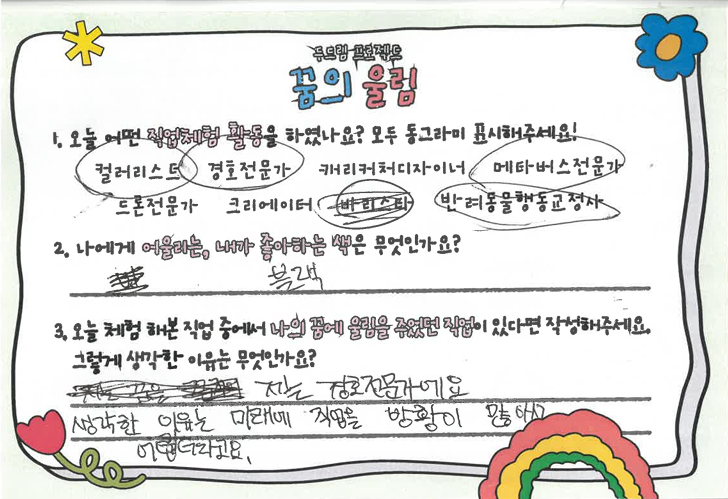 두드림 프로젝트
꿈의 울림
1. 오늘 어떤 직업체험 활동을 하였나요? 모두 동그라미 표시해주세요!
컬러리스트 경호전문가 캐리커처디자이너 메타버스전문가
드론전문가 크리에이터 바리스타 반려동물행동교정사
2. 나에게 어울리는, 내가 좋아하는 색은 무엇인가요?
블랙
3. 오늘 체험 해본 직업 중에서 나의 꿈에 울림을 주었던 직업이 있다면 작성해주세요.
그렇게 생각한 이유는 무엇인가요?
저는 경호전문가에요
생각한 이유는 미래에 직업을 방황이